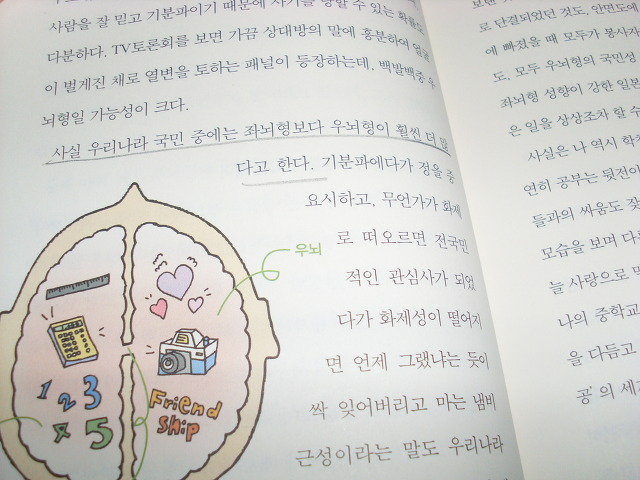 사람을 잘 믿고 기분파이기 때문에 사기를 당할 수 있는 확률도
다분하다. TV토론회를 보면 가끔 상대방의 말에 흥분하여 얼굴
이 벌게진 채로 열변을 토하는 패널이 등장하는데, 백발백중 우
뇌형일 가능성이 크다.
사실 우리나라 국민 중에는 좌뇌형보다 우뇌형이 훨씬 더 많
다고 한다. 기분파에다가 정을 중
요시하고, 무언가가 화제
로 떠오르면 전국민
적인 관심사가 되었
다가 화제성이 떨어지
면 언제 그랬냐는 듯이
싹 잊어버리고 마는 냄비
근성이라는 말도 우리나라
우뇌
1 2 3
4 5
Friend
ship
로 단결되었던 것도, 안면도에
에 빠졌을 때 모두가 봉사자
도, 모두 우뇌형의 국민성
좌뇌형 성향이 강한 일본
은 일을 상상조차 할 수
사실은 나 역시 학
연히 공부는 뒷전이
들과의 싸움도 잦
모습을 보며 다
늘 사랑으로
나의 중학교
을 다듬고
공’의 세